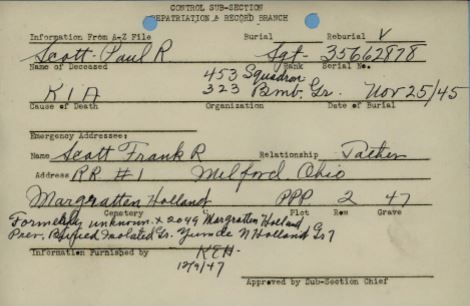 CONTROL SUB-SECTION
REPATRIATION & RECORD BRANCH
Information From A-Z File Burial Reburial V
Scott Paul R. Sgt. 35662878
Name of Deceased Rank Serial No.
453 Squadron
KIA 323 Bmb. Gr. Nov 25/45
Cause of Death Organization Date of Burial
Emergency Addressee:
Name Scott Frank R Relationship Father
Address RR #1 Milford Ohio
Margratten Holland PPP 2 47
Cemetery Plot Row Grave
Formerly unknown X 2099 Margratten Holland
Prev. Buried Isolated Gr. N Holland Gr 7
Information Furnished by KEH
12/9/47
Approved by Sub-Section Chief